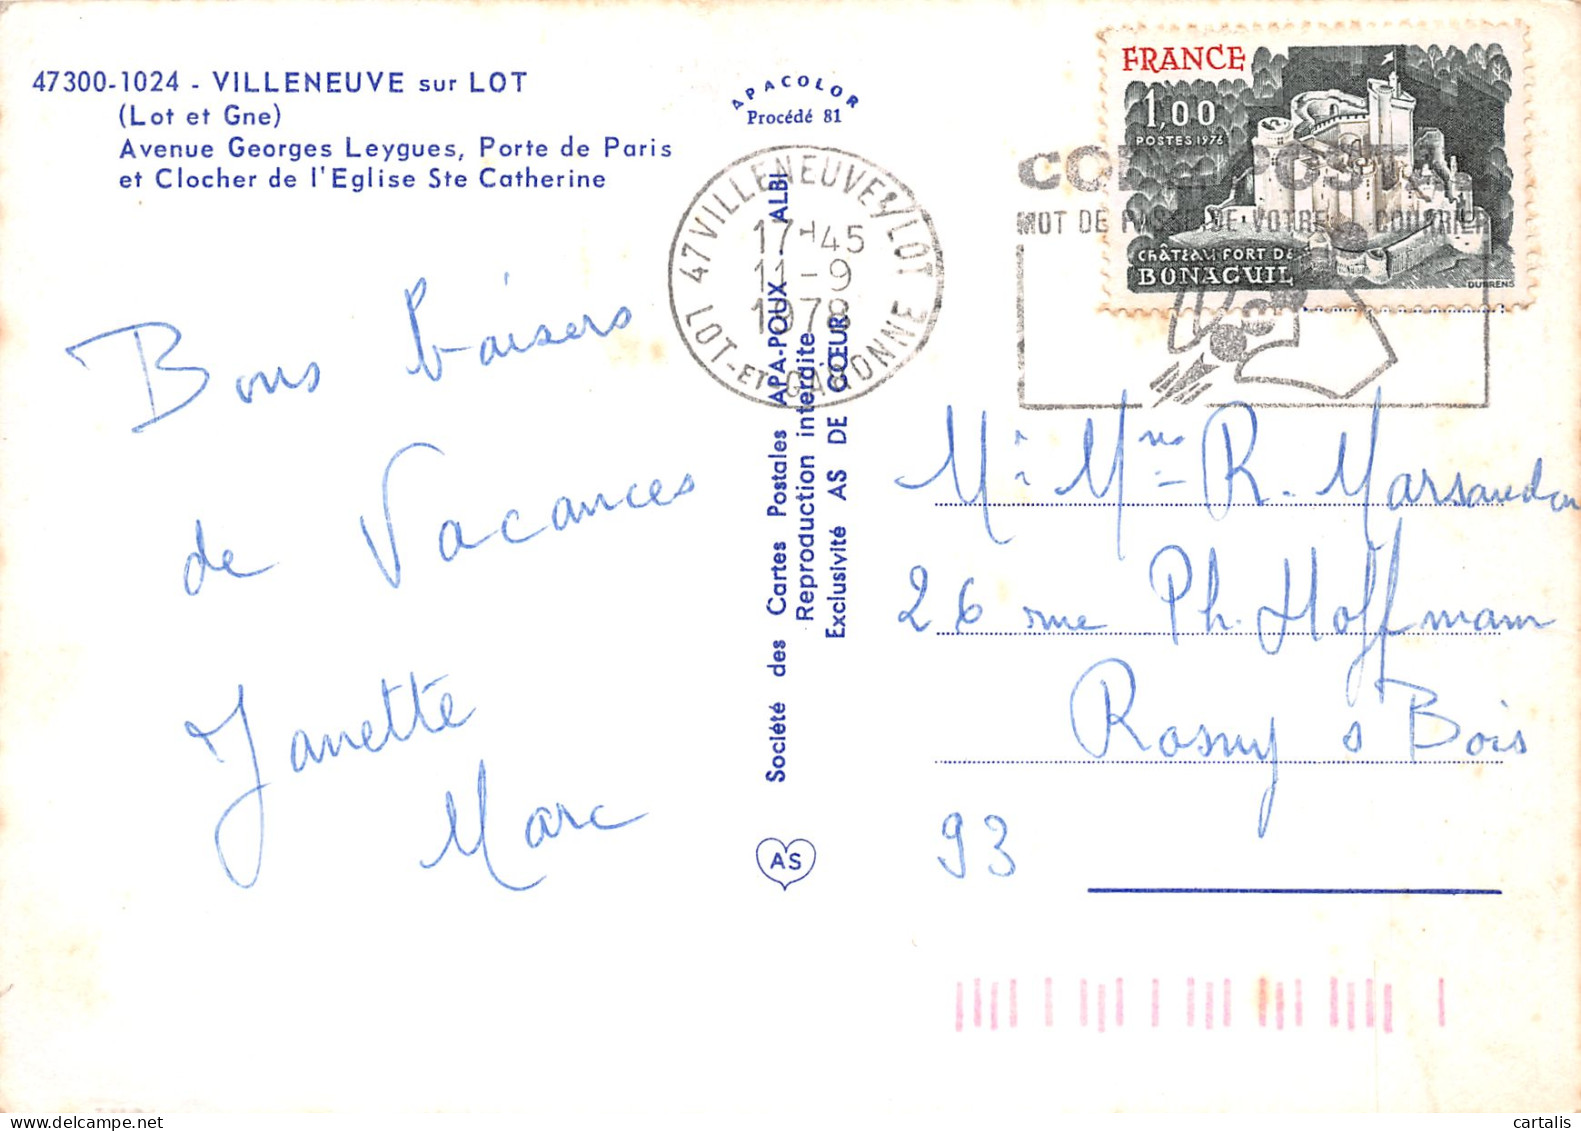 47300-1024 - VILLENEUVE sur LOT
(Lot et Gne)
Avenue Georges Leygues, Porte de Paris
et Clocher de l'Eglise Ste Catherine
APACOLOR
Procédé 81
47 VILLENEUVE S/LOT
17-45
11-9
1978
LOT-ET-GARONNE
FRANCE
1,00
POSTES 1976
CHÂTEAU FORT DE
BONAGUIL
DURRENS
MOT DE PASSE DE VOTRE COURRIER
Bons baisers
de Vacances
Janette
Marc
Société des Cartes Postales APA-POUX - ALBI
Reproduction interdite
Exclusivité AS DE CŒUR
AS
R. Marsaudon
26 rue Ph. Hoffmann
Rosny s Bois
93
cartalis